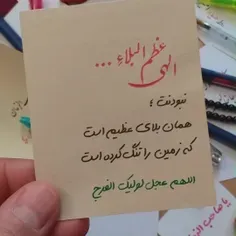 الهی عظم البلاء ...
نبودنت ؛
همان بلای عظیم است
که زمین را تنگ کرده است
اللهم عجل لولیک الفرج
یا صاحب